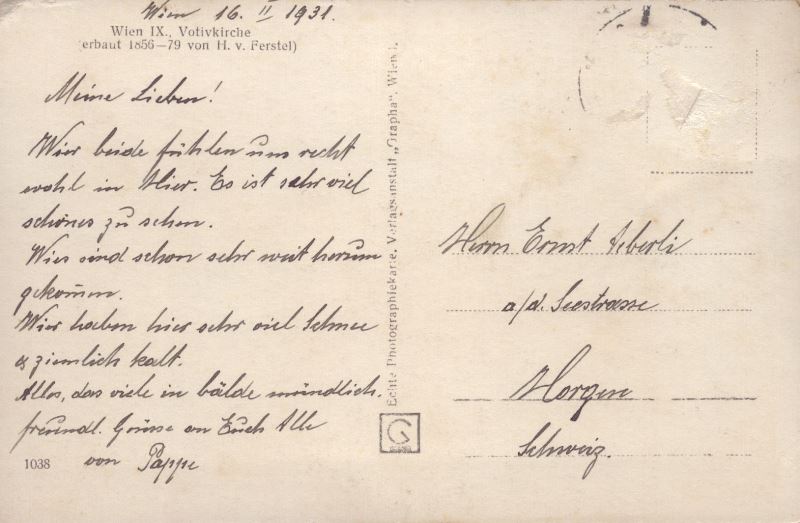 Wien 16. II 1931.
Wien IX., Votivkirche
(erbaut 1856—79 von H. v. Ferstel)
Meine Lieben!
Wier beide fühlen uns recht
wohl in Wier. Es ist sehr viel
schönes zu sehen.
Wier sind schon sehr weit herum
gekommen.
Wier haben hier sehr viel Schnee
es ziemlich kalt.
Alles, das viele in bälde mündlich.
freundl. Grüsse an Euch Alle
von Pappe
1038
Echte Photographiekarte, Verlagsanstalt „Grapha", Wien I.
G
Herrn Ernst Aeberli
a/d. Seestrasse
Horgen
Schweiz.